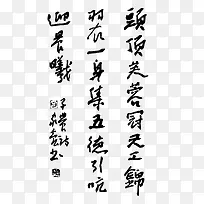 頭頂芙蓉冠天工錦
羽衣一身集五德引吭
迎晨曦